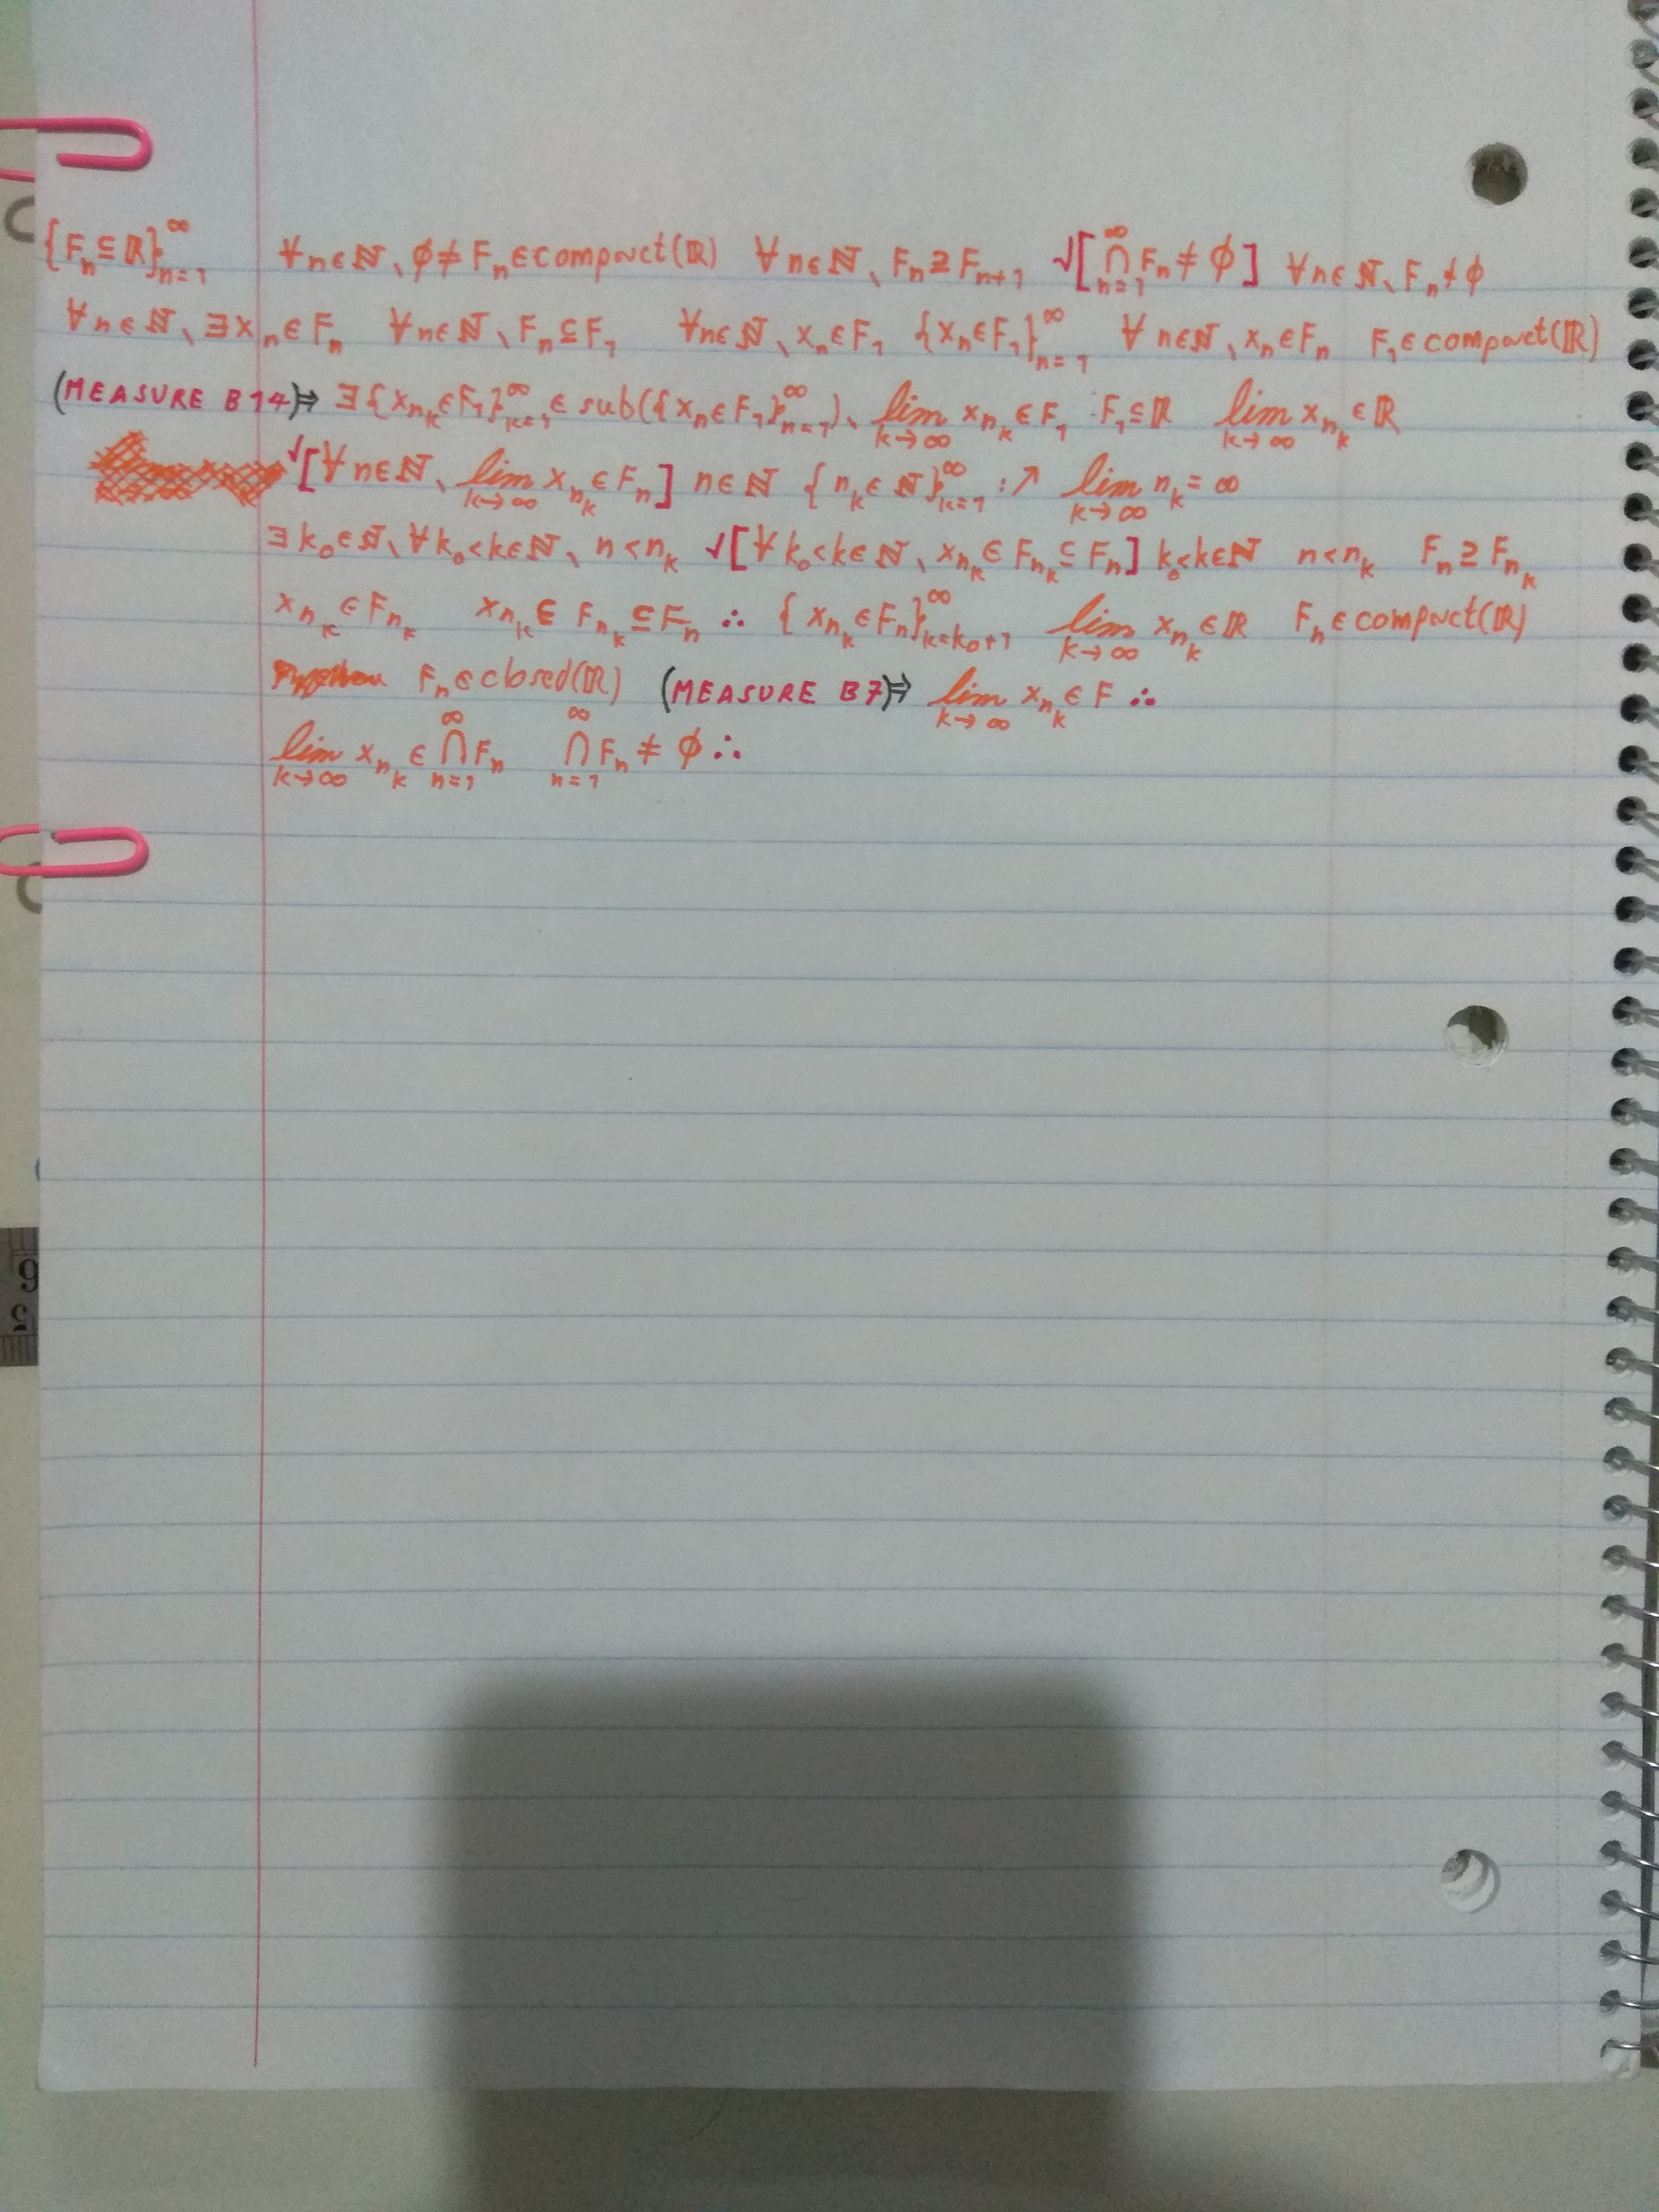 {Fₙ ⊆ ℝ}ₙ₌₁^∞ ∀n∈ℕ、∅≠Fₙ∈compact(ℝ) ∀n∈ℕ、Fₙ⊇Fₙ₊₁ √[⋂ₙ₌₁^∞ Fₙ≠∅] ∀n∈ℕ、Fₙ≠∅
∀n∈ℕ、∃xₙ∈Fₙ ∀n∈ℕ、Fₙ⊆F₁ ∀n∈ℕ、xₙ∈F₁ {xₙ∈F₁}ₙ₌₁^∞ ∀n∈ℕ、xₙ∈Fₙ F₁∈compact(ℝ)
(MEASURE B14)⇒ ∃{x_{n_k}∈F₁}_{k=1}^∞∈sub({xₙ∈F₁}ₙ₌₁^∞)、lim_{k→∞} x_{n_k}∈F₁ F₁⊆ℝ lim_{k→∞} x_{n_k}∈ℝ
√[∀n∈ℕ、lim_{k→∞} x_{n_k}∈Fₙ] n∈ℕ {n_k∈ℕ}_{k=1}^∞ :↗ lim_{k→∞} n_k=∞
∃k₀∈ℕ、∀k₀<k∈ℕ、n<n_k √[∀k₀<k∈ℕ、x_{n_k}∈F_{n_k}⊆Fₙ] k₀<k∈ℕ n<n_k Fₙ⊇F_{n_k}
x_{n_k}∈F_{n_k} x_{n_k}∈F_{n_k}⊆Fₙ ∴ {x_{n_k}∈Fₙ}_{k=k₀+1}^∞ lim_{k→∞} x_{n_k}∈ℝ Fₙ∈compact(ℝ)
Fₙ∈closed(ℝ) (MEASURE B7)⇒ lim_{k→∞} x_{n_k}∈F ∴
lim_{k→∞} x_{n_k}∈⋂ₙ₌₁^∞ Fₙ ⋂ₙ₌₁^∞ Fₙ≠∅ ∴
6